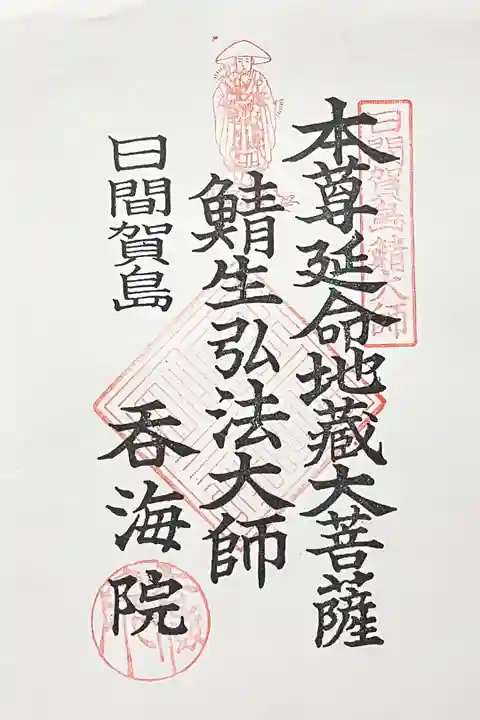 日間賀島鯖大師
本尊延命地蔵大菩薩
鯖生弘法大師
日間賀島 呑海院